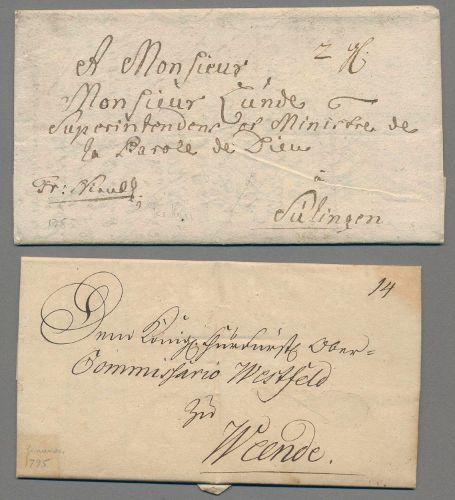 A Monsieur
2 H.
Monsieur Lünde
Superintendent et Ministre de
la Parole de Dieu
Fr: Nienb.
à
Sulingen
14
Dem Königl. Churfürstl. Ober-
Commissario Westfeld
zu
Weende.
1795